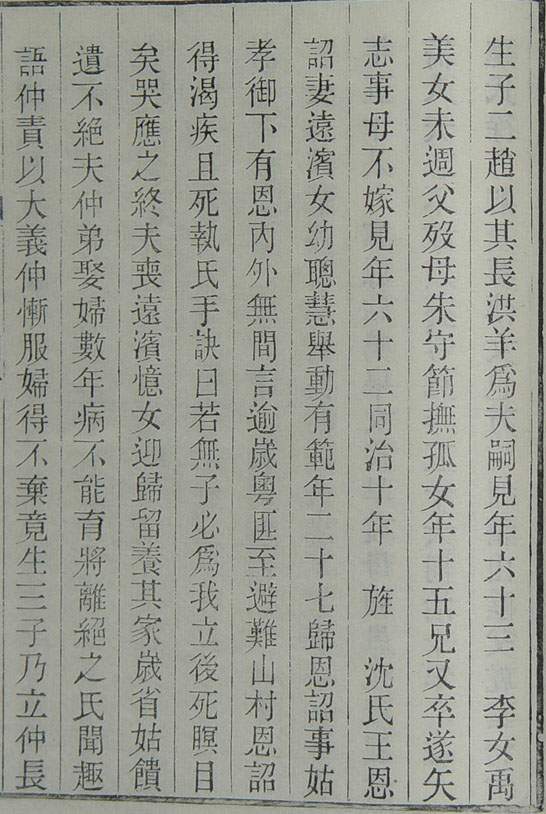 生子二趙以其長洪羊爲夫嗣見年六十三　李女禹
美女未週父歿母朱守節撫孤女年十五兄又卒遂矢
志事母不嫁見年六十二同治十年　旌　沈氏王恩
詔妻遠濱女幼聰慧舉動有範年二十七歸恩詔事姑
孝御下有恩內外無間言逾歲粵匪至避難山村恩詔
得渴疾且死執氏手訣曰若無子必爲我立後死瞑目
矣哭應之終夫喪遠濱憶女迎歸留養其家歲省姑饋
遺不絕夫仲弟娶婦數年病不能育將離絕之氏聞趣
語仲責以大義仲慚服婦得不棄竟生三子乃立仲長